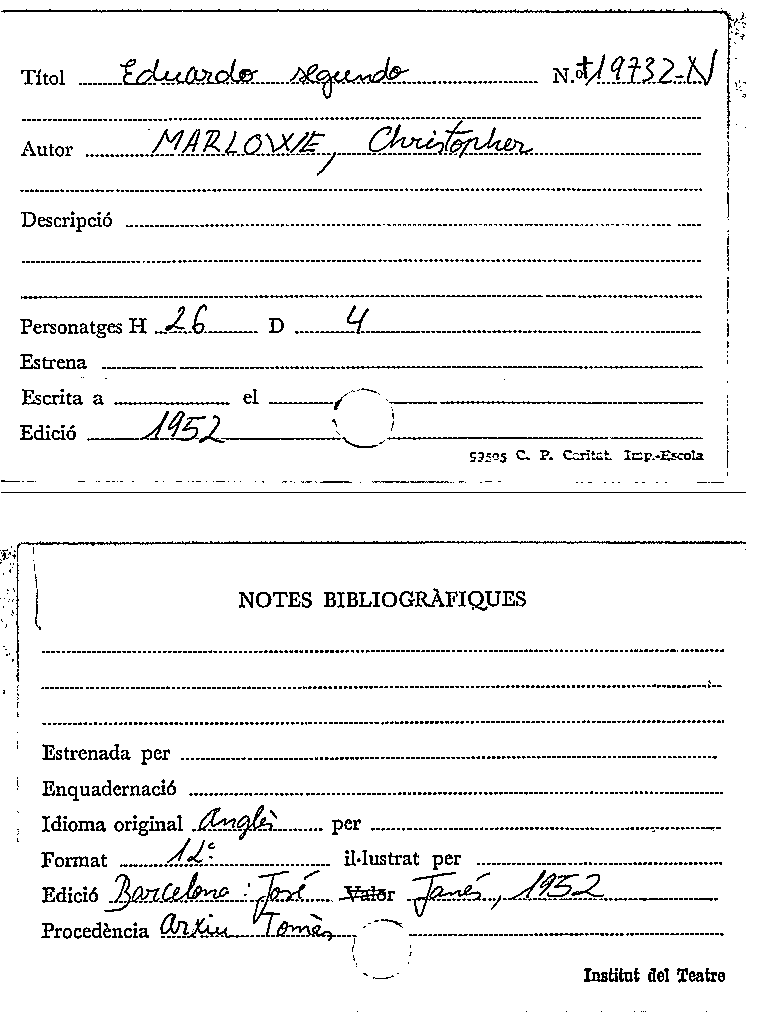 Títol Eduardo segundo N.º t19732-N
Autor MARLOWE, Christopher
Descripció
Personatges H 26 D 4
Estrena
Escrita a el
Edició 1952
53505 C. P. Caritat. Imp.-Escola
NOTES BIBLIOGRÀFIQUES
Estrenada per
Enquadernació
Idioma original Anglès per
Format 12º il·lustrat per
Edició Barcelona: José Valor Janés, 1952
Procedència Arxiu Tomàs
Institut del Teatre